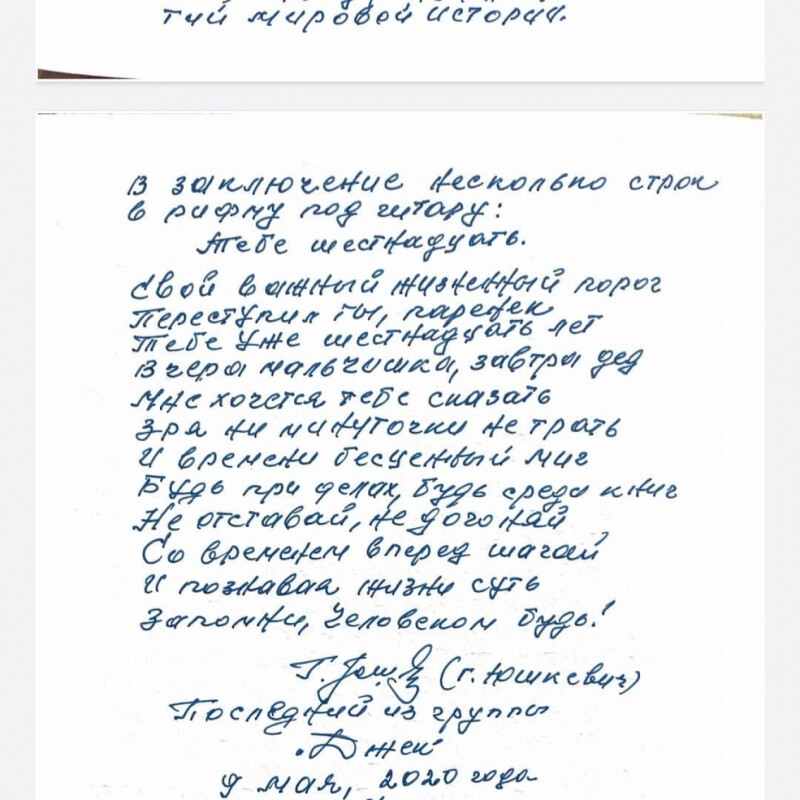 тий мировой истории.
В заключение несколько строк
в рифму под гитару:
Тебе шестнадцать.
Свой важный жизненный порог
Переступил ты, паренек
Тебе уже шестнадцать лет
Вчера мальчишка, завтра дед
Мне хочется тебе сказать
Зря ни минуточки не трать
И времени бесценный миг
Будь при делах, будь среди книг
Не отставай, не догоняй
Со временем вперед шагай
И познавая жизни суть
Запомни, Человеком будь!
(Г. Юшкевич)
Последний из группы
"Джек"
9 мая, 2020 года